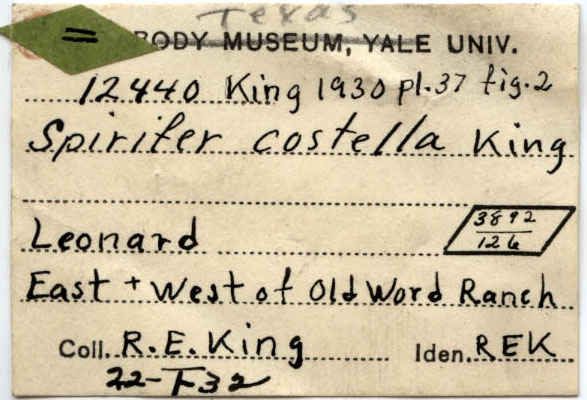 Texas
BODY MUSEUM, YALE UNIV.
12440 King 1930 pl.37 fig.2
Spirifer costella King
Leonard
3892
126
East + West of Old Word Ranch
Coll. R.E.King Iden. REK
22-T32